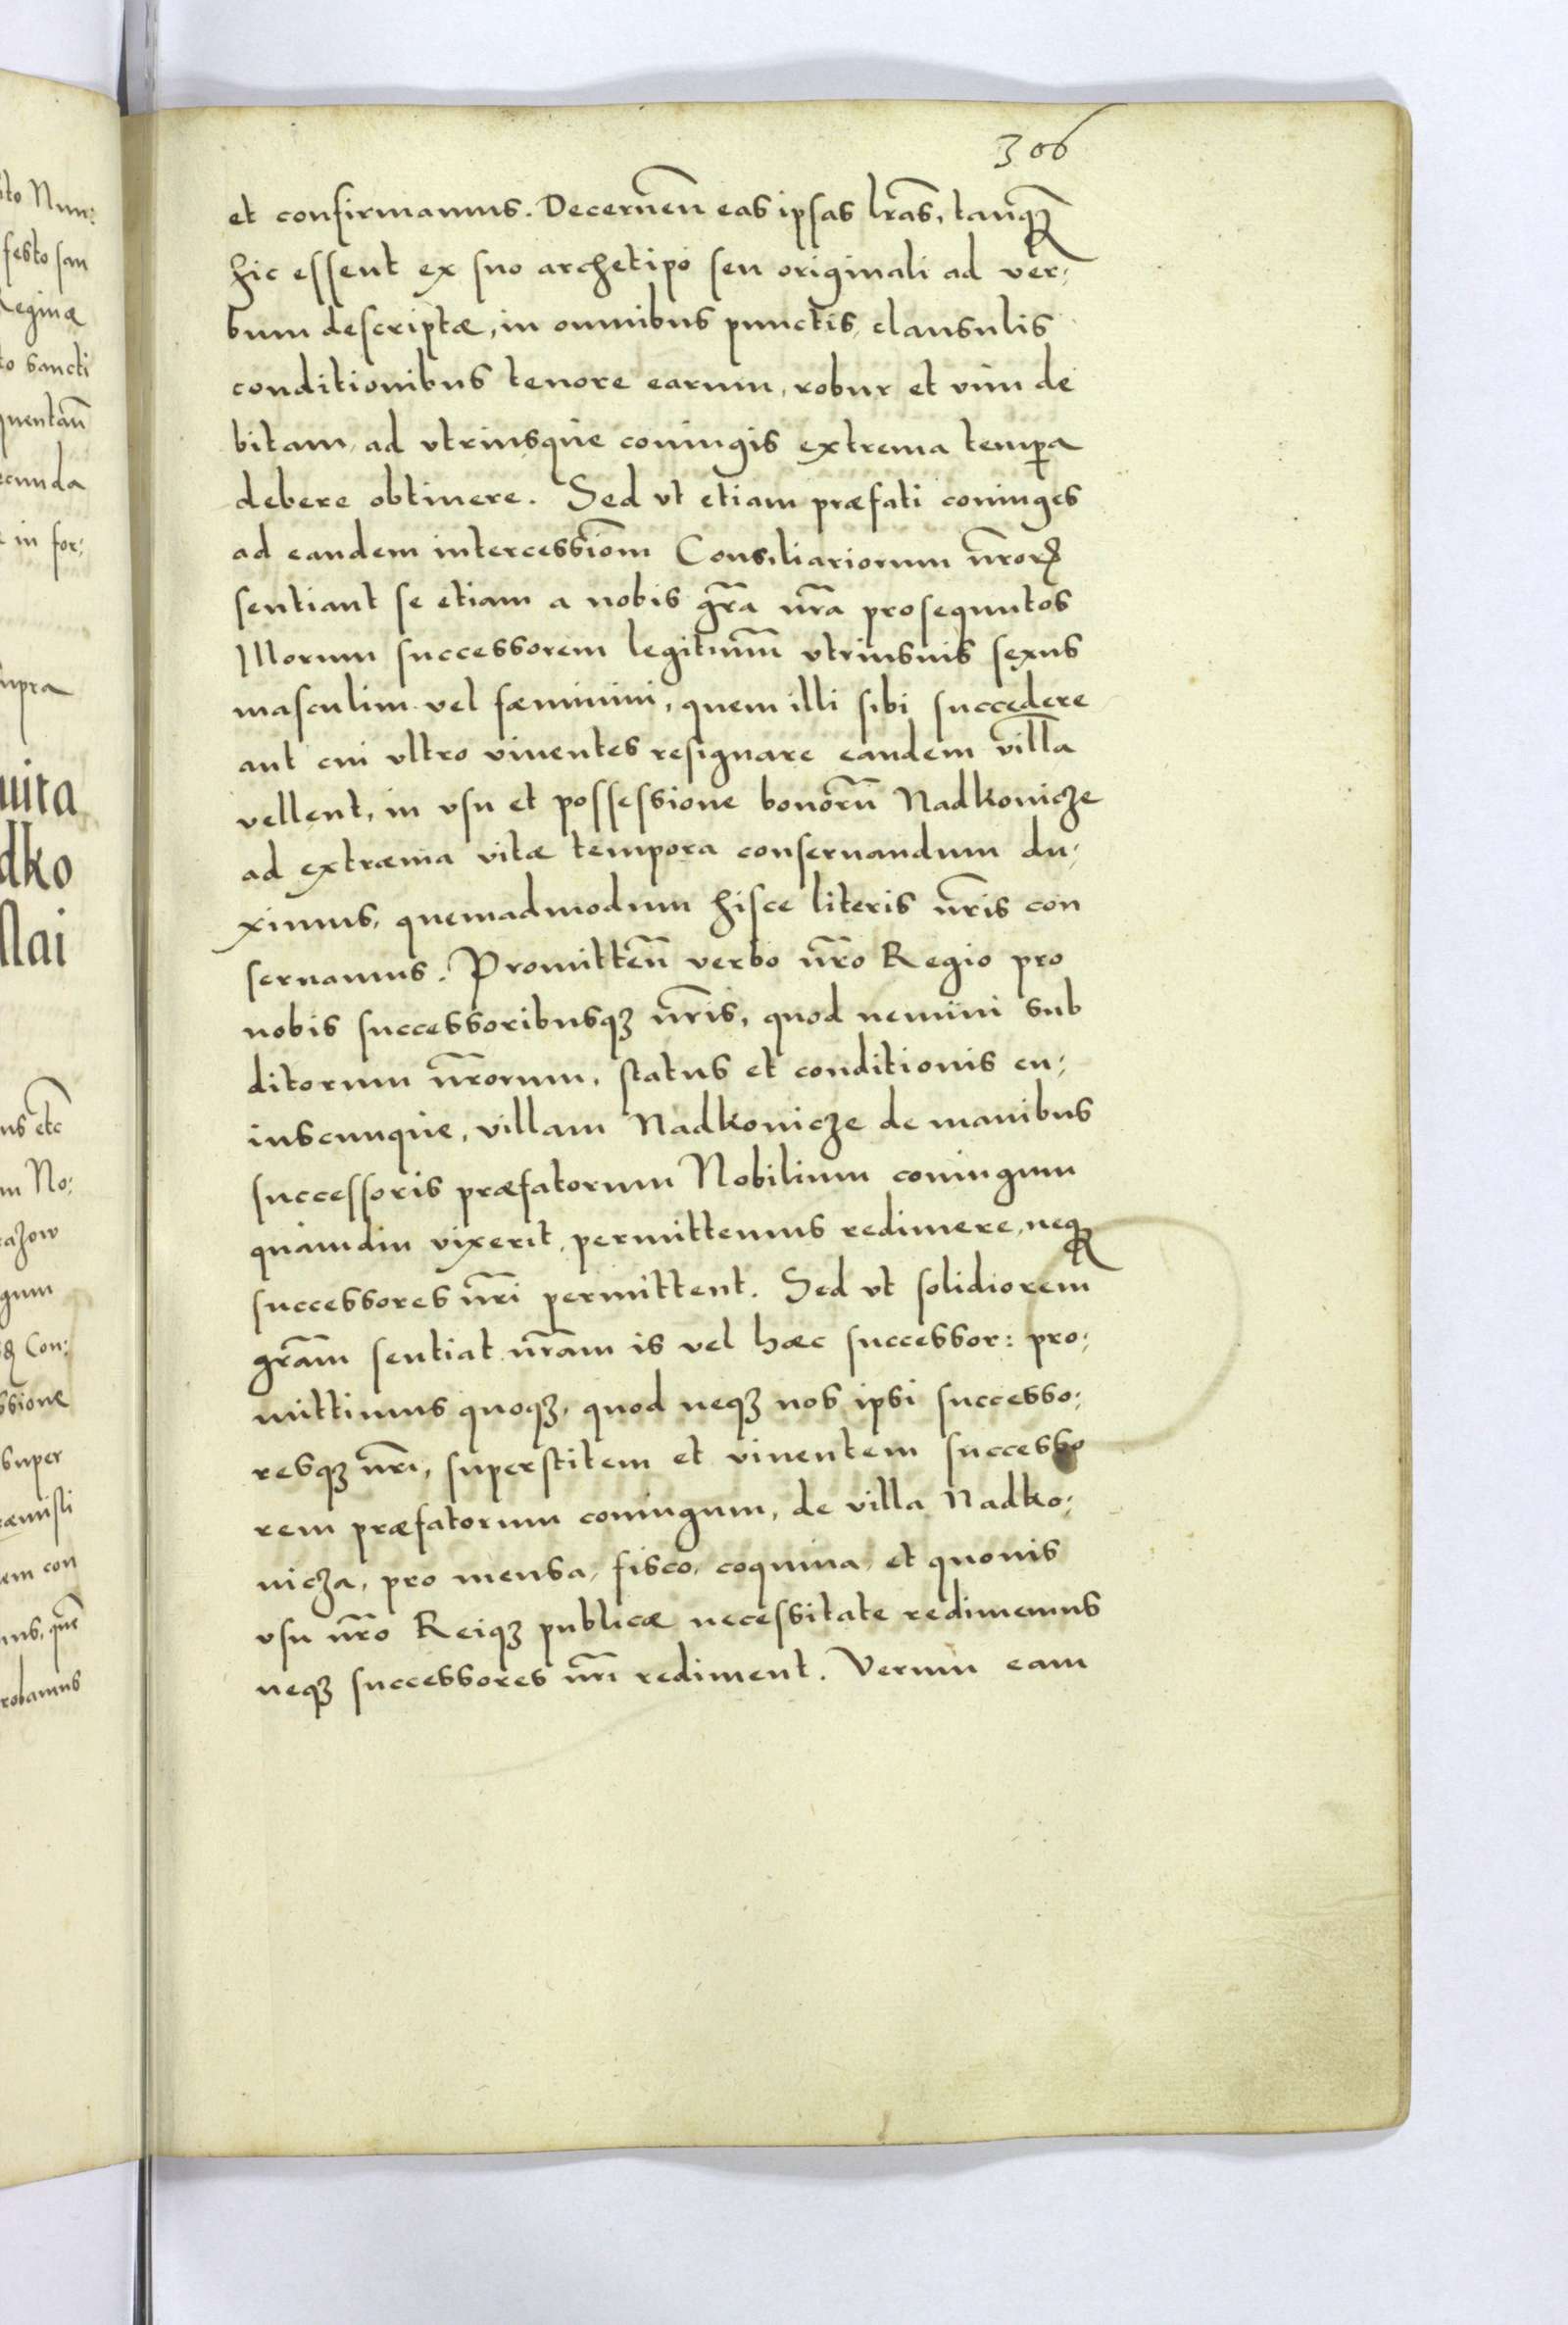 306
et confirmamus. Decerneñ eas ipsas lr̃as, tanq̃ꝫ
hic essent ex suo archetipo seu originali ad ver;
bum descriptæ, in omnibus punctis, clausulis
conditionibus tenore earum, robur et vim de
bitam, ad vtriusque coniugis extrema temp̱a
debere obtinere. Sed vt etiam præfati coniuges
ad eandem intercessiom̃ Consiliariorum nr̃oꝝ
sentiant se etiam a nobis gr̃a nr̃a prosequutos
Illorum successorem legitimũ vtriusuis sexus
masculini vel fæminini, quem illi sibi succedere
aut cui vltro viuentes resignare eandem villã
vellent, in vsu et possessione bonorũ Nadkonicze
ad extræma vitæ tempora conseruandum du;
ximus, quemadmodum hisce literis nr̃is con
seruamus. Promitteñ verbo nr̃o Regio pro
nobis successoribusqꝫ nr̃is, quod nemini sub
ditorum nr̃orum, status et conditionis cu;
iuscunque, villam Nadkonicze de manibus
successoris præfatorum Nobilium coniugum
quamdiu vixerit, permittemus redimere, neqꝫ
successores nr̃i permittent. Sed vt solidiorem
gr̃am sentiat nr̃am is vel hæc successor: pro;
mittimus quoqꝫ, quod neqꝫ nos ipsi successo;
resqꝫ nr̃i, superstitem et viuentem successo
rem præfatorum coniugum, de villa Nadko;
nicza, pro mensa, fisco, coquina, et quouis
vsu nr̃o Reiqꝫ publicæ necessitate redimemus
neqꝫ successores nr̃i rediment. Verum eam